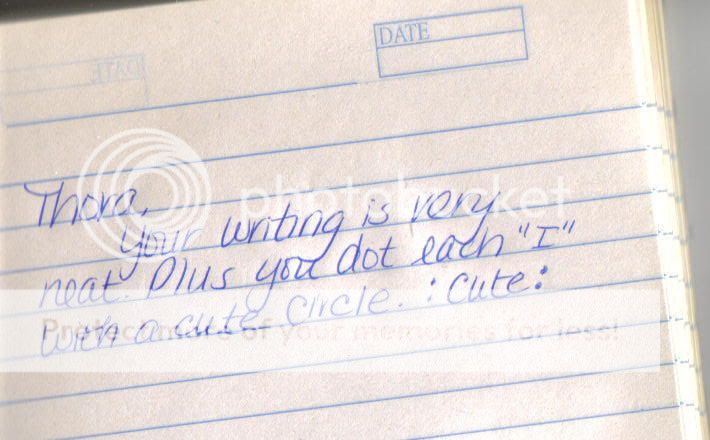 DATE
DATE
Thora,
Your writing is very
neat. Plus you dot each "I"
with a cute circle. : cute :
photobucket
Protect more of your memories for less!